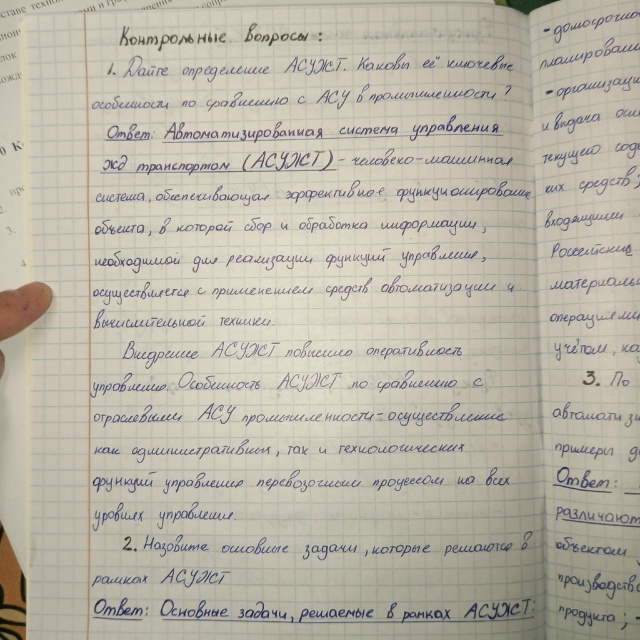 Контрольные вопросы:
1. Дайте определение АСУЖТ. Каковы её ключевые
особенности по сравнению с АСУ в промышленности?
Ответ: Автоматизированная система управления
жд транспортом (АСУЖТ) - человеко-машинная
система, обеспечивающая эффективное функционирование
объекта, в которой сбор и обработка информации,
необходимой для реализации функций управления,
осуществляется с применением средств автоматизации и
вычислительной техники.
Внедрение АСУЖТ повысило оперативность
управления. Особенность АСУЖТ по сравнению с
отраслевыми АСУ промышленности - осуществление
как административных, так и технологических
функций управления перевозочным процессом на всех
уровнях управления.
2. Назовите основные задачи, которые решаются в
рамках АСУЖТ
Ответ: Основные задачи, решаемые в рамках АСУЖТ:
- домосрочно
планировани
- организаци
и выдача осн
текущего соде
ких средств;
входящими
Российские
материаль
операциями
учётом, на
3. По
автоматиз
примеры д
Ответ:
различают
объектом
производство
продукта; -